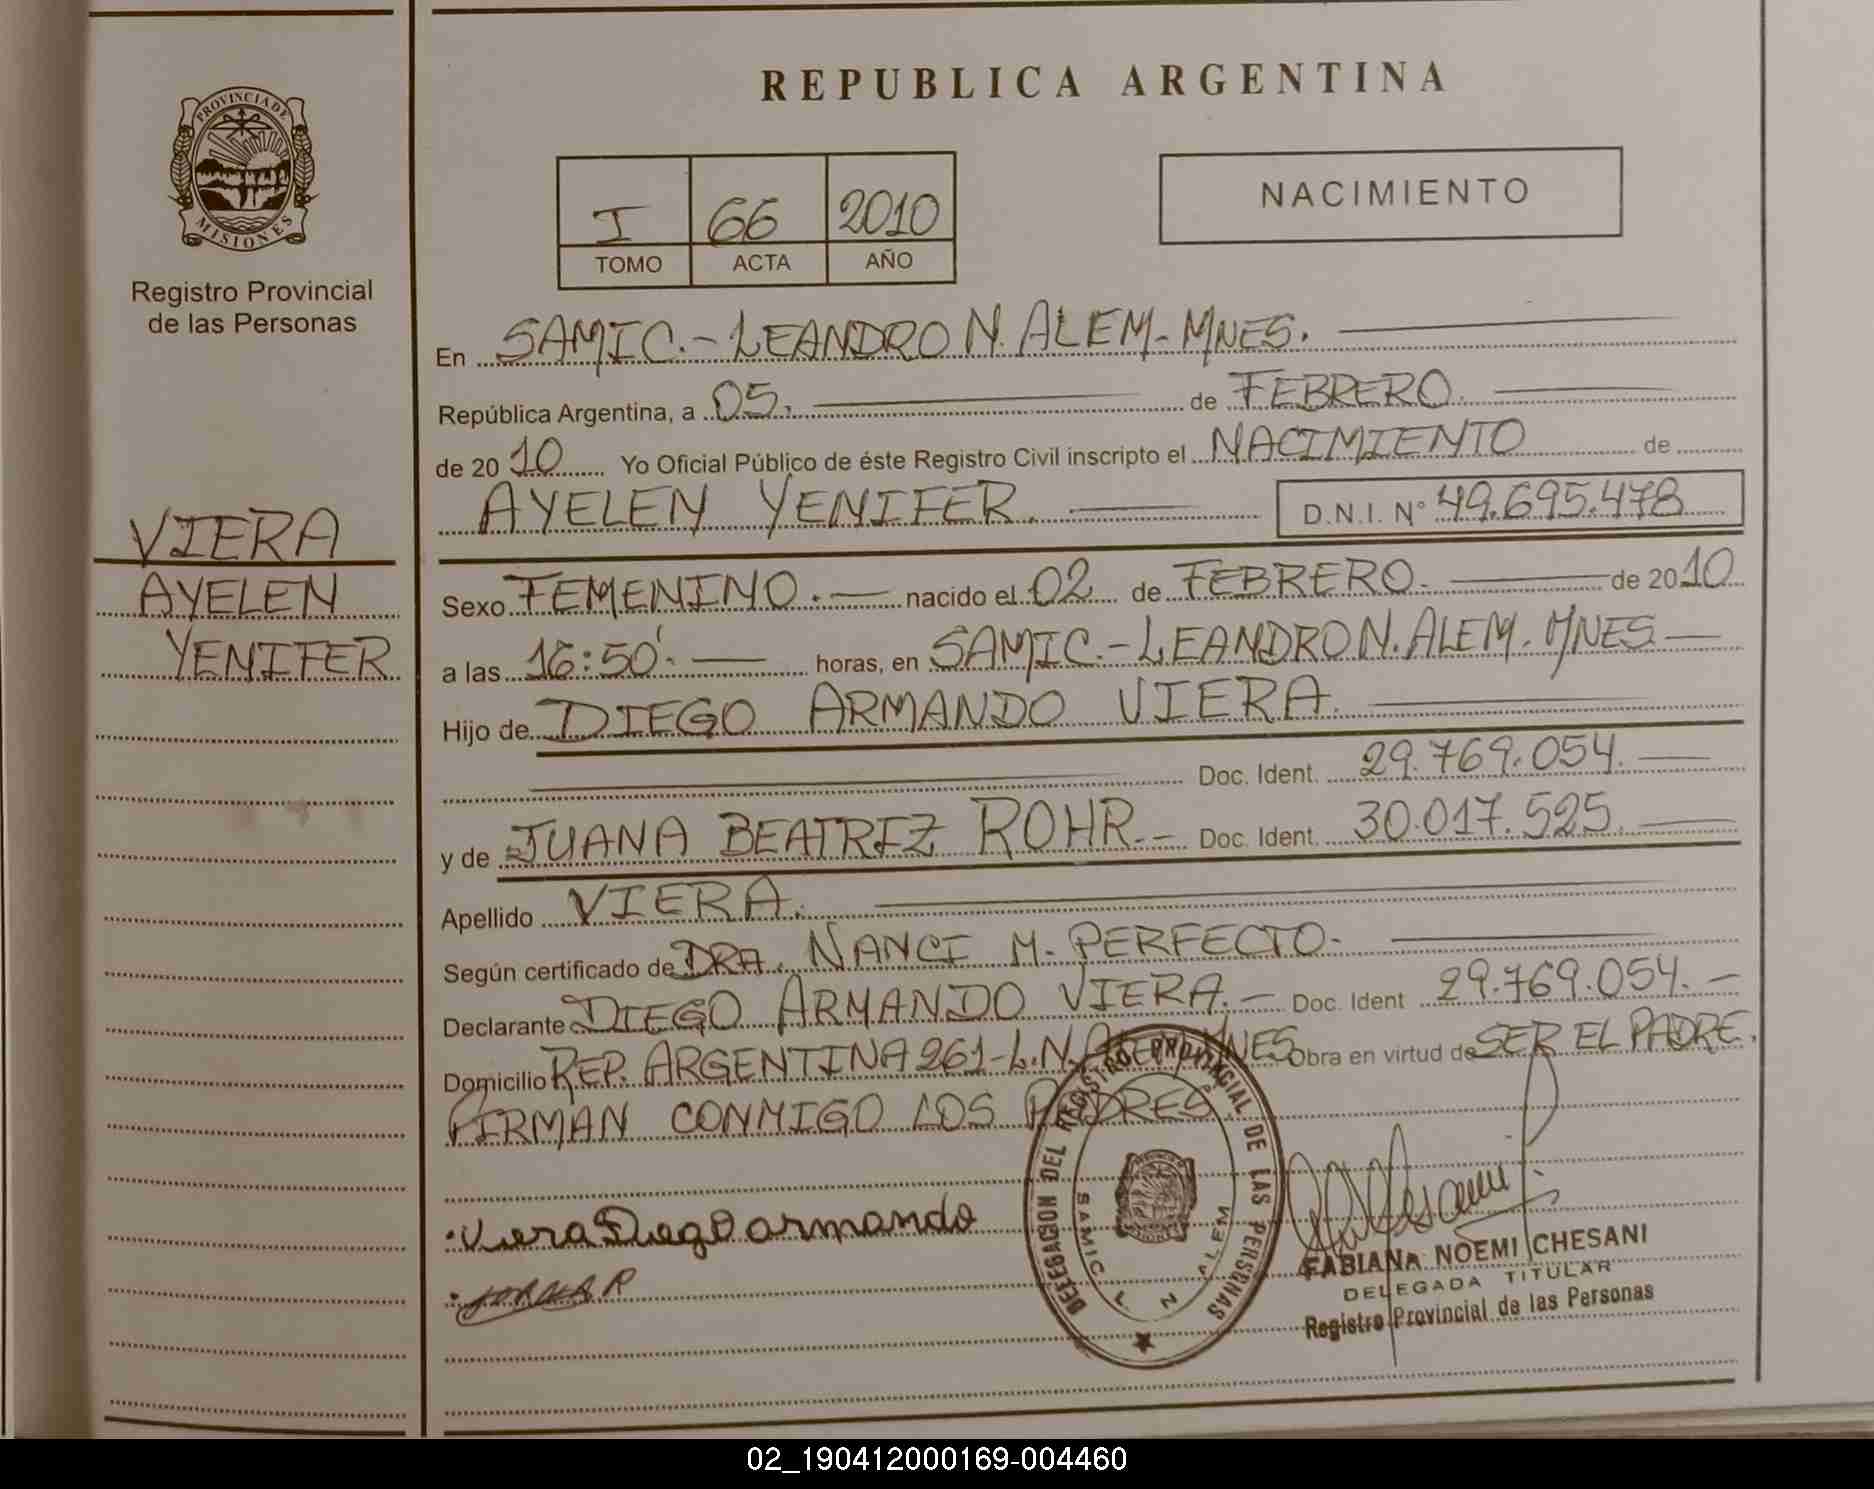 REPUBLICA ARGENTINA
PROVINCIA DE
MISIONES
Registro Provincial
de las Personas
VIERA
AYELEN
YENIFER
I 66 2010
TOMO ACTA AÑO
NACIMIENTO
En SAMIC.-LEANDRO N. ALEM-MNES.
República Argentina, a 05. de FEBRERO.
de 20 10 Yo Oficial Público de éste Registro Civil inscripto el NACIMIENTO de
AYELEN YENIFER. D.N.I. N° 49.695.478
Sexo FEMENINO. nacido el 02 de FEBRERO. de 20 10
a las 16:50'. horas, en SAMIC.-LEANDRO N. ALEM-MNES
Hijo de DIEGO ARMANDO VIERA.
Doc. Ident. 29.769.054.
y de JUANA BEATRIZ ROHR.- Doc. Ident. 30.017.525.
Apellido VIERA.
Según certificado de DRA. NANCI M. PERFECTO.
Declarante DIEGO ARMANDO VIERA.- Doc. Ident 29.769.054.-
Domicilio REP. ARGENTINA 261-L.N. ALEM-MNES Obra en virtud de SER EL PADRE.
FIRMAN CONMIGO LOS PADRES.
Viera Diego armando
DELEGACION DEL REGISTRO PROVINCIAL DE LAS PERSONAS
SAMIC L N ALEM
FABIANA NOEMI CHESANI
DELEGADA TITULAR
Registro Provincial de las Personas
02_190412000169-004460